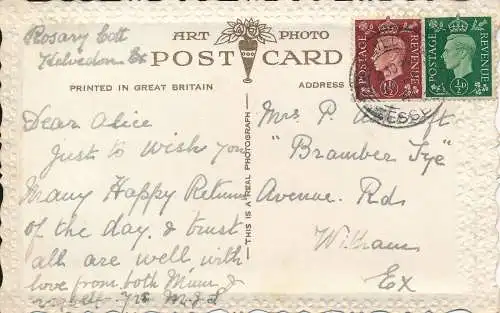 Rosary Cott
Kelvedon Ex
ART PHOTO
POST CARD
PRINTED IN GREAT BRITAIN
ADDRESS
THIS IS A REAL PHOTOGRAPH
Dear Alice
Just to wish you
Many Happy Returns
of the day & trust
all are well with
love from both Mum &
myself. Yrs
Mrs P.
"Bramber Tye"
Avenue. Rd
Witham
Ex
POSTAGE REVENUE
1½D
POSTAGE REVENUE
½D
ESSEX